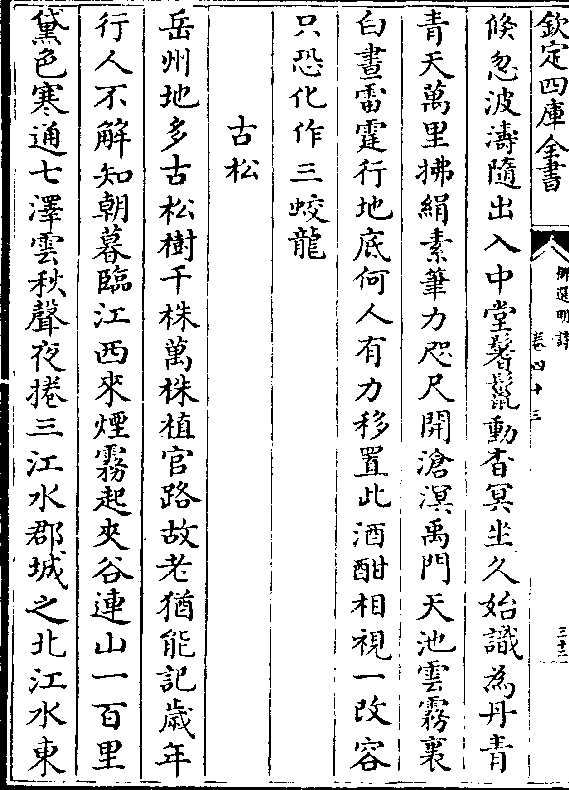 欽定四庫全書
御選明詩
卷四十三
三十三
倐忽波濤隨出入中堂鬐鬣動杳冥坐久始識為丹青
青天萬里拂絹素筆力咫尺開滄溟禹門天池雲霧裏
白晝雷霆行地底何人有力移置此酒酣相視一改容
只恐化作三蛟龍
古松
岳州地多古松樹千株萬株植官路故老猶能記歲年
行人不解知朝暮臨江西來煙霧起夾谷連山一百里
黛色寒通七澤雲秋聲夜捲三江水郡城之北江水東